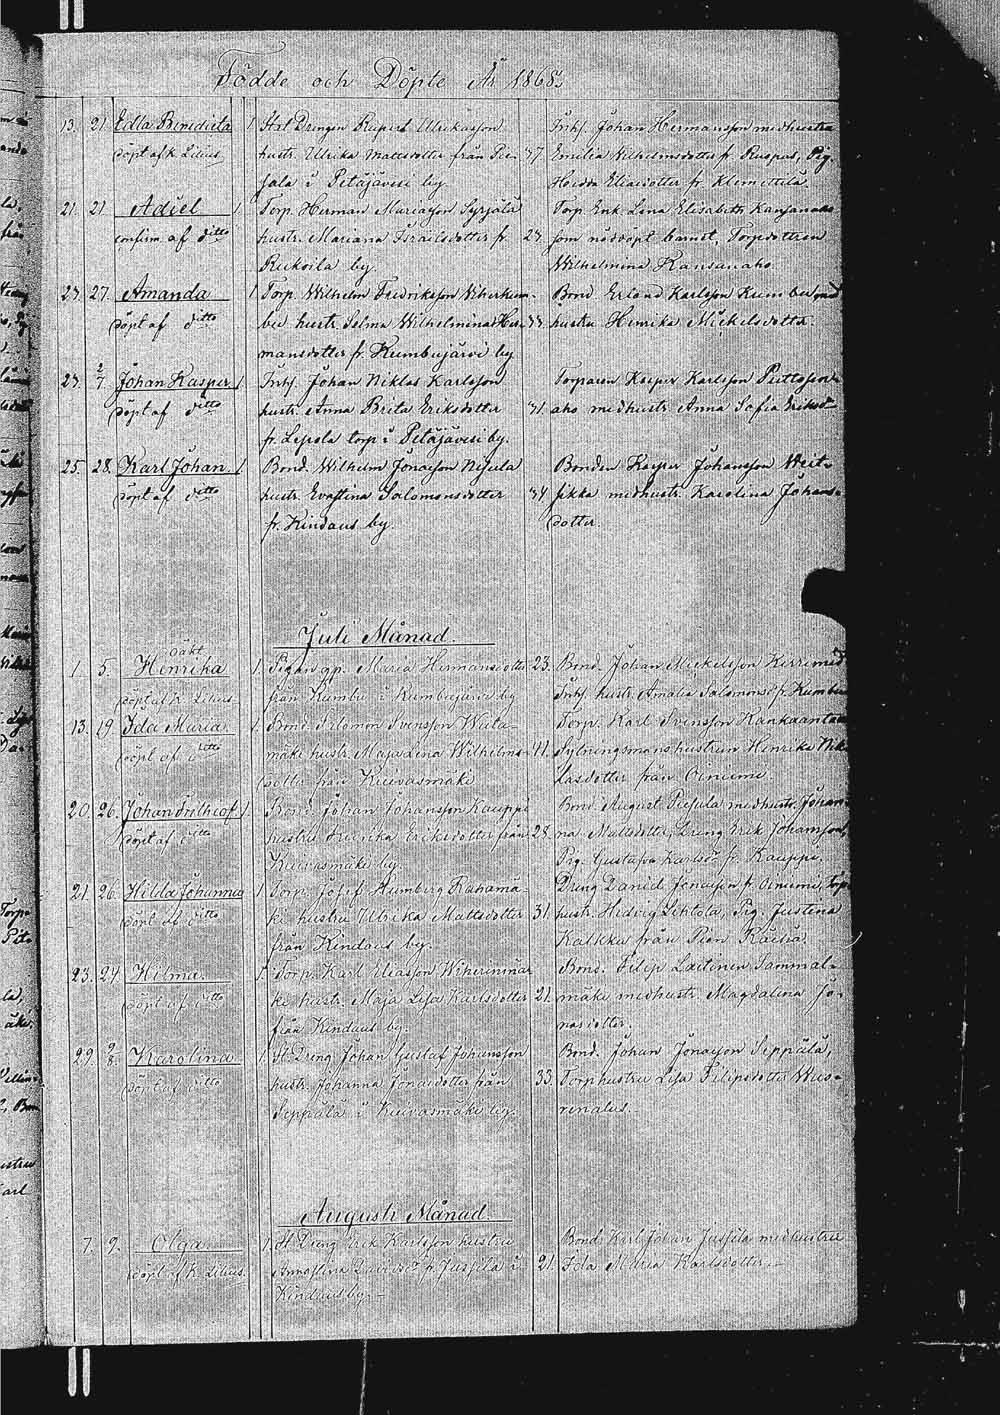 Födde och Döpte År 1868.
13. 21. Edla Benedicta 1 Stat Drengen Ruperl Ulrikasson Inhs. Johan Hermansson medhustru
döpt af K Lilius. hustr. Ulrika Mattsdotter från Pie- 37 Emilia Wilhelmsdotter fr. Ruspus, Pig.
sala i Petäjävesi by. Hedda Eliasdotter fr. Klemettilä.
21. 21 Adiel 1 Torp. Herman Mariasson Syrjälä Torp. Enk. Lena Elisabeth Kansanaho
confirm af ditto hustr. Mariana Israelsdotter fr. 27. som nöddöpt barnet, Torpdottren
Rukoila by. Wilhelmina Kansanaho.
27. Amanda 1 Torp. Wilhelm Fredriksson Wiherkum- Bond. Erland Karlsson Kumbu med
döpt af ditto bu hustr. Selma Wilhelmina Her- hustru Henrika Mickelsdotter.
mansdotter fr. Kumbujärvi by
2/7. Johan Kasper 1. Inhs. Johan Niklas Karlsson Torparen Kasper Karlsson Puttosen-
döpt af ditto hustr. Anna Brita Eriksdotter 31. aho medhustr. Anna Sofia Eriksd.
fr. Lepola torp i Petäjävesi by.
25. 28. Karl Johan. 1 Bond. Wilhelm Jonasson Nisula Bonden Kasper Johansson Weit-
döpt af ditto hustr. Evastina Salomonsdotter 34 sikka medhustr. Karolina Johans-
fr. Kindaus by. dotter.
Juli Månad.
oäkt
1. 5. Henrika 1. Pigan gp. Maria Hermansdotter 23. Bond. Johan Mickelsson Kerri med
döpt af K. Lilius. från Kumbu i Kumbujärvi by Inhs. hustr. Amalia Salomonsd. fr. Kumbu
13. 19. Ida Maria. 1. Bond. Salomon Svensson Wiita- Torp. Karl Svensson Kankaanta
döpt af ditto mäki hustr. Maja Lena Wilhelms- 41. Sytningsmans hustrun Henrika Nik-
dotter från Kuivasmäki lasdotter från Oinumi.
20. 26. Johan Frithiof 1 Bond. Johan Johansson Kauppi Bond. August Piesala medhustr. Johan-
döpt af ditto hustru Henrika Eriksdotter från 28. na Mattsdotter, Dreng Erik Johansson,
Kuivasmäki by Pig. Gustafva Karlsdr fr. Kauppi.
21. 26. Hilda Johanna 1. Torp. Josef Humberg Rahamä- Dreng Daniel Jonasson fr. Oinumi, Torp.
döpt af ditto ki hustru Ulrika Mattsdotter 31. hustr. Hedvig Lehtola, Pig. Justina
från Kindaus by. Kalkku från
23. 24. Hilma. 1. Torp. Karl Eliasson Wiherinmä- Bond. Filip Laitinen Tammal-
döpt af ditto ki hustr. Maja Lisa Karlsdotter 21. mäki medhustr. Magdalena Jo-
från Kindaus by. nasdotter.
29. 9/8. Karolina. 1. St. Dreng Johan Gustaf Johansson Bond. Johan Jonasson Seppälä,
döpt af ditto hustr. Johanna Jonasdotter från 33. Torphustru Lisa Filipsdotter Wuo-
Seppälä i Kuivasmäki by. rinalus.
Augusti Månad.
7. 9. Olga 1. St. Dreng Erik Karlsson hustru Bond Karl Johan Jussila medhustru
döpt af K. Lilius. Annastina Davidsdr fr. Jussila i 21. Ida Maria Karlsdotter.-
Kindaus by.-